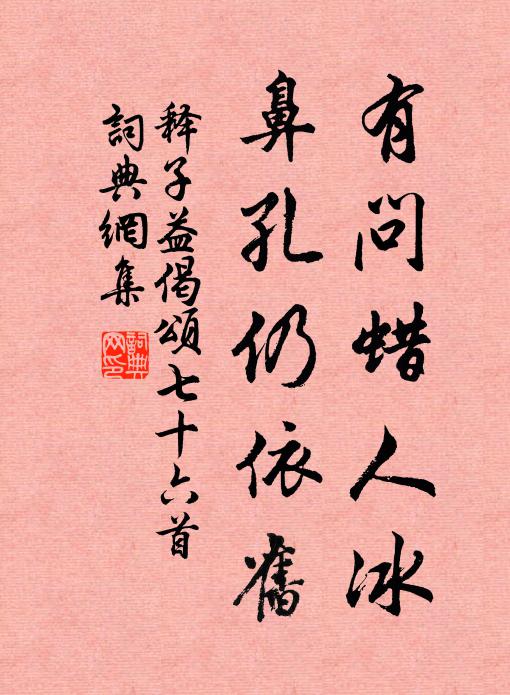 有问蜡人冰
鼻孔仍依舊
释子益偈頌七十六首
詞典網集
詞典网印